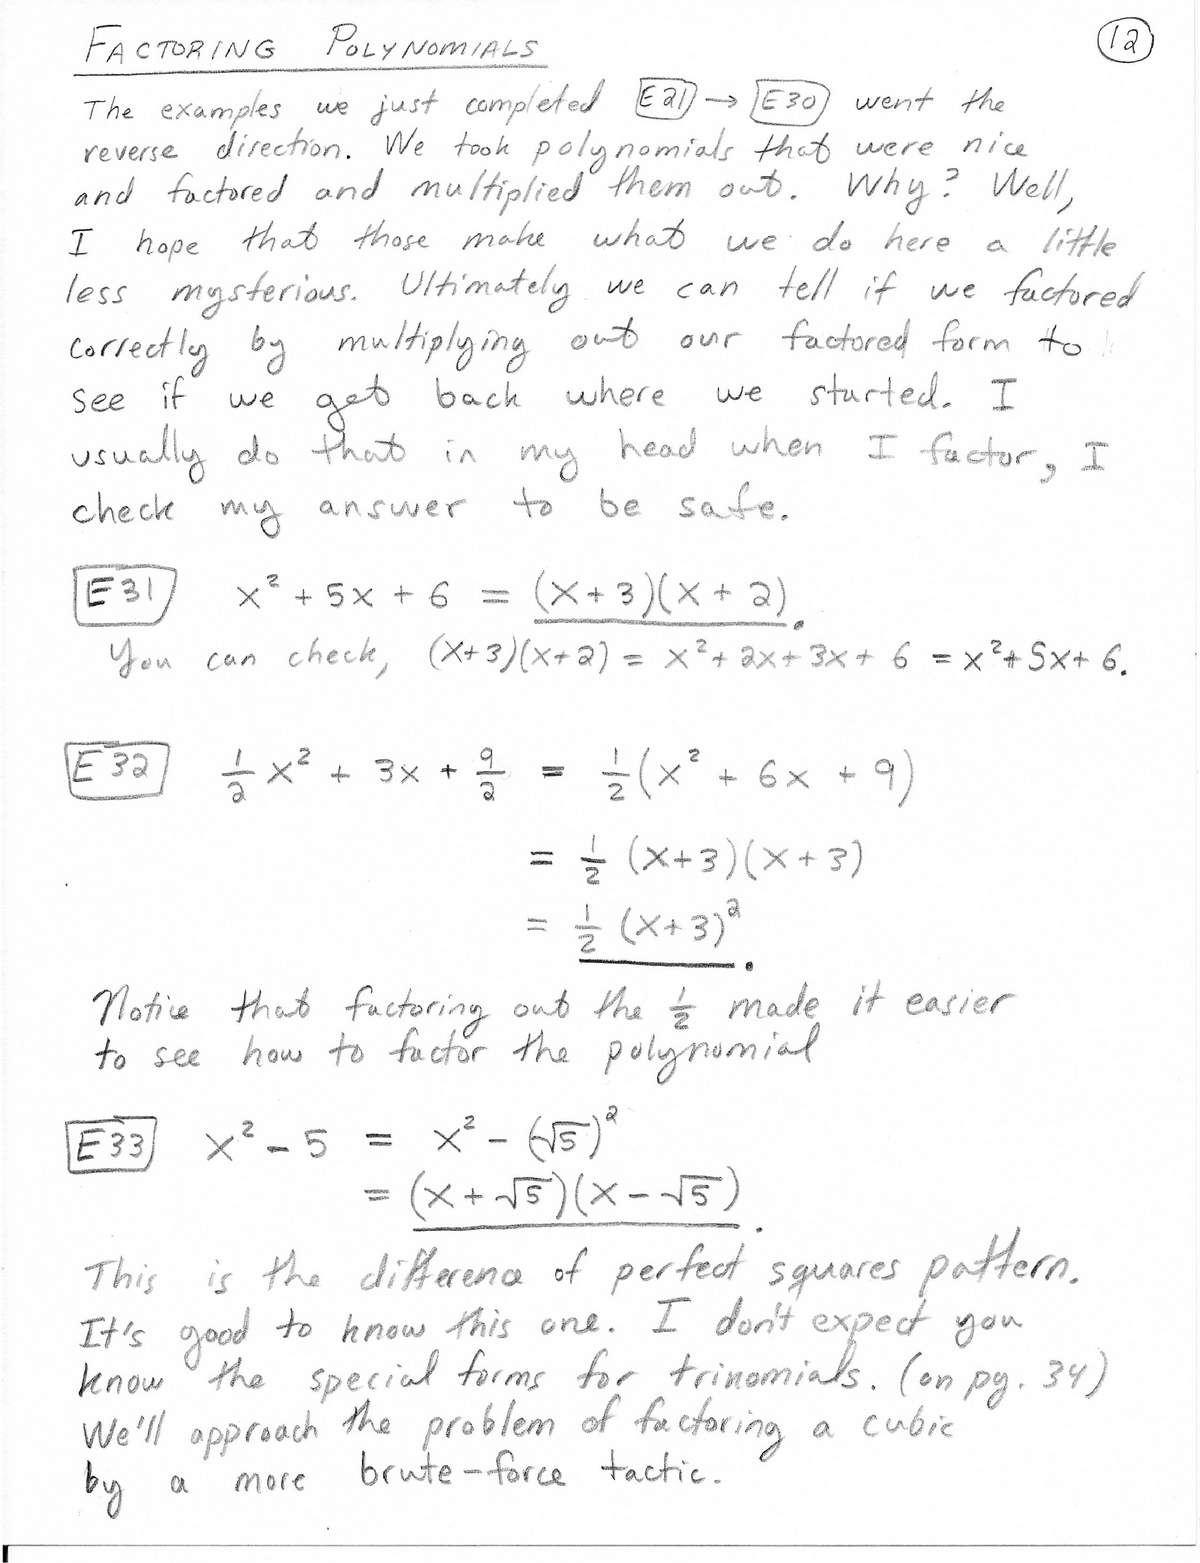 FACTORING POLYNOMIALS
12
The examples we just completed E21 → E30 went the
reverse direction. We took polynomials that were nice
and factored and multiplied them out. Why? Well,
I hope that those make what we do here a little
less mysterious. Ultimately we can tell if we factored
correctly by multiplying out our factored form to
see if we get back where we started. I
usually do that in my head when I factor, I
check my answer to be safe.
E31 x² + 5x + 6 = (x+3)(x+2).
You can check, (x+3)(x+2) = x²+2x+3x+6 = x²+5x+6.
E32 ½x² + 3x + 9/2 = ½(x² + 6x + 9)
= ½ (x+3)(x+3)
= ½ (x+3)².
Notice that factoring out the ½ made it easier
to see how to factor the polynomial
E33 x² - 5 = x² - (√5)²
= (x+√5)(x-√5).
This is the difference of perfect squares pattern.
It's good to know this one. I don't expect you
know the special forms for trinomials. (on pg. 34)
We'll approach the problem of factoring a cubic
by a more brute-force tactic.